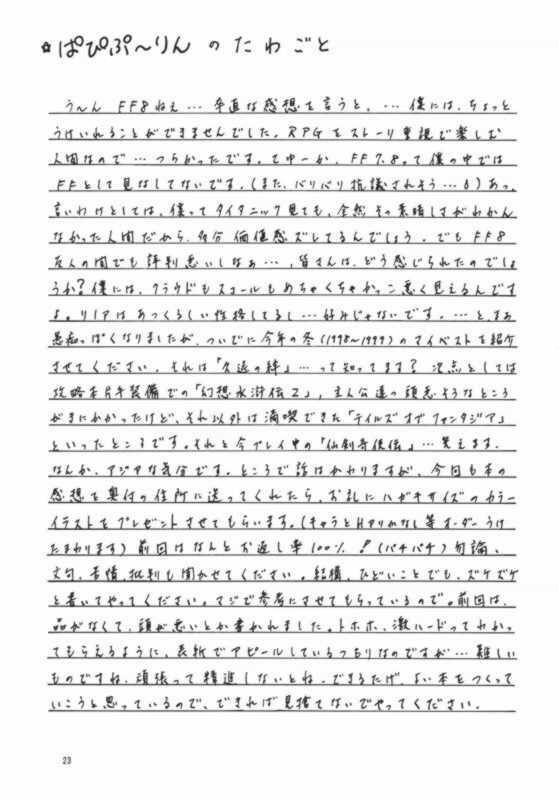 ☆ぱぴぷ〜りん のたわごと
う〜ん FF8ねぇ…率直な感想を言うと、…僕には、ちょっと
うけいれることができませんでした。RPGをストーリー重視で楽しむ
人間なので…つらかったです。てゆーか、FF7.8って僕の中では
FFとして見なしてないです。(また、バリバリ抗議されそう…)あっ、
言いわけとしては、僕ってタイタニック見ても、全然その素晴しさがわかん
なかった人間だから、多分価値感ズレてるんでしょう。でもFF8
友人の間でも評判悪いしなぁ…、皆さんは、どう感じられたのでしょ
うか?僕には、クラウドもスコールもめちゃくちゃかっこ悪く見えるんです
よ。リノアはあつくるしい性格してるし…好みじゃないです。…と、まぁ
愚痴っぽくなりましたが、ついでに今年の冬(1998〜1999)のマイベストを紹介
させてください。それは「久遠の絆」…って知ってます?次点としては
攻略本片手装備での「幻想水滸伝2」、主人公達の頭悪そうなところ
が気にかかったけど、それ以外は満喫できた「テイルズ オブ ファンタジア」
といったところです。それと今プレイ中の「仙剣奇侠伝」…笑えます。
なんか、アジアな気分です。ところで話はかわりますが、今回も本の
感想を奥付の住所に送ってくれたら、お礼にハガキサイズのカラー
イラストをプレゼントさせてもらいます。(キャラとHアリかなし等オーダーうけ
たまわります)前回はなんとお返し率100%!(パチパチ)勿論、
文句、苦情、批判も聞かせてください。結構、ひどいことでも、ズケズケ
と書いてやってください。マジで参考にさせてもらっているので。前回は、
品がなくて、頭が悪いとか書かれました。トホホ、激ハードってわかっ
てもらえるように、表紙でアピールしているつもりなのですが…難しい
ものですね、頑張って精進しないとね。できるだけ、よい本をつくって
いこうと思っているので、できれば見捨てないでやってください。
23